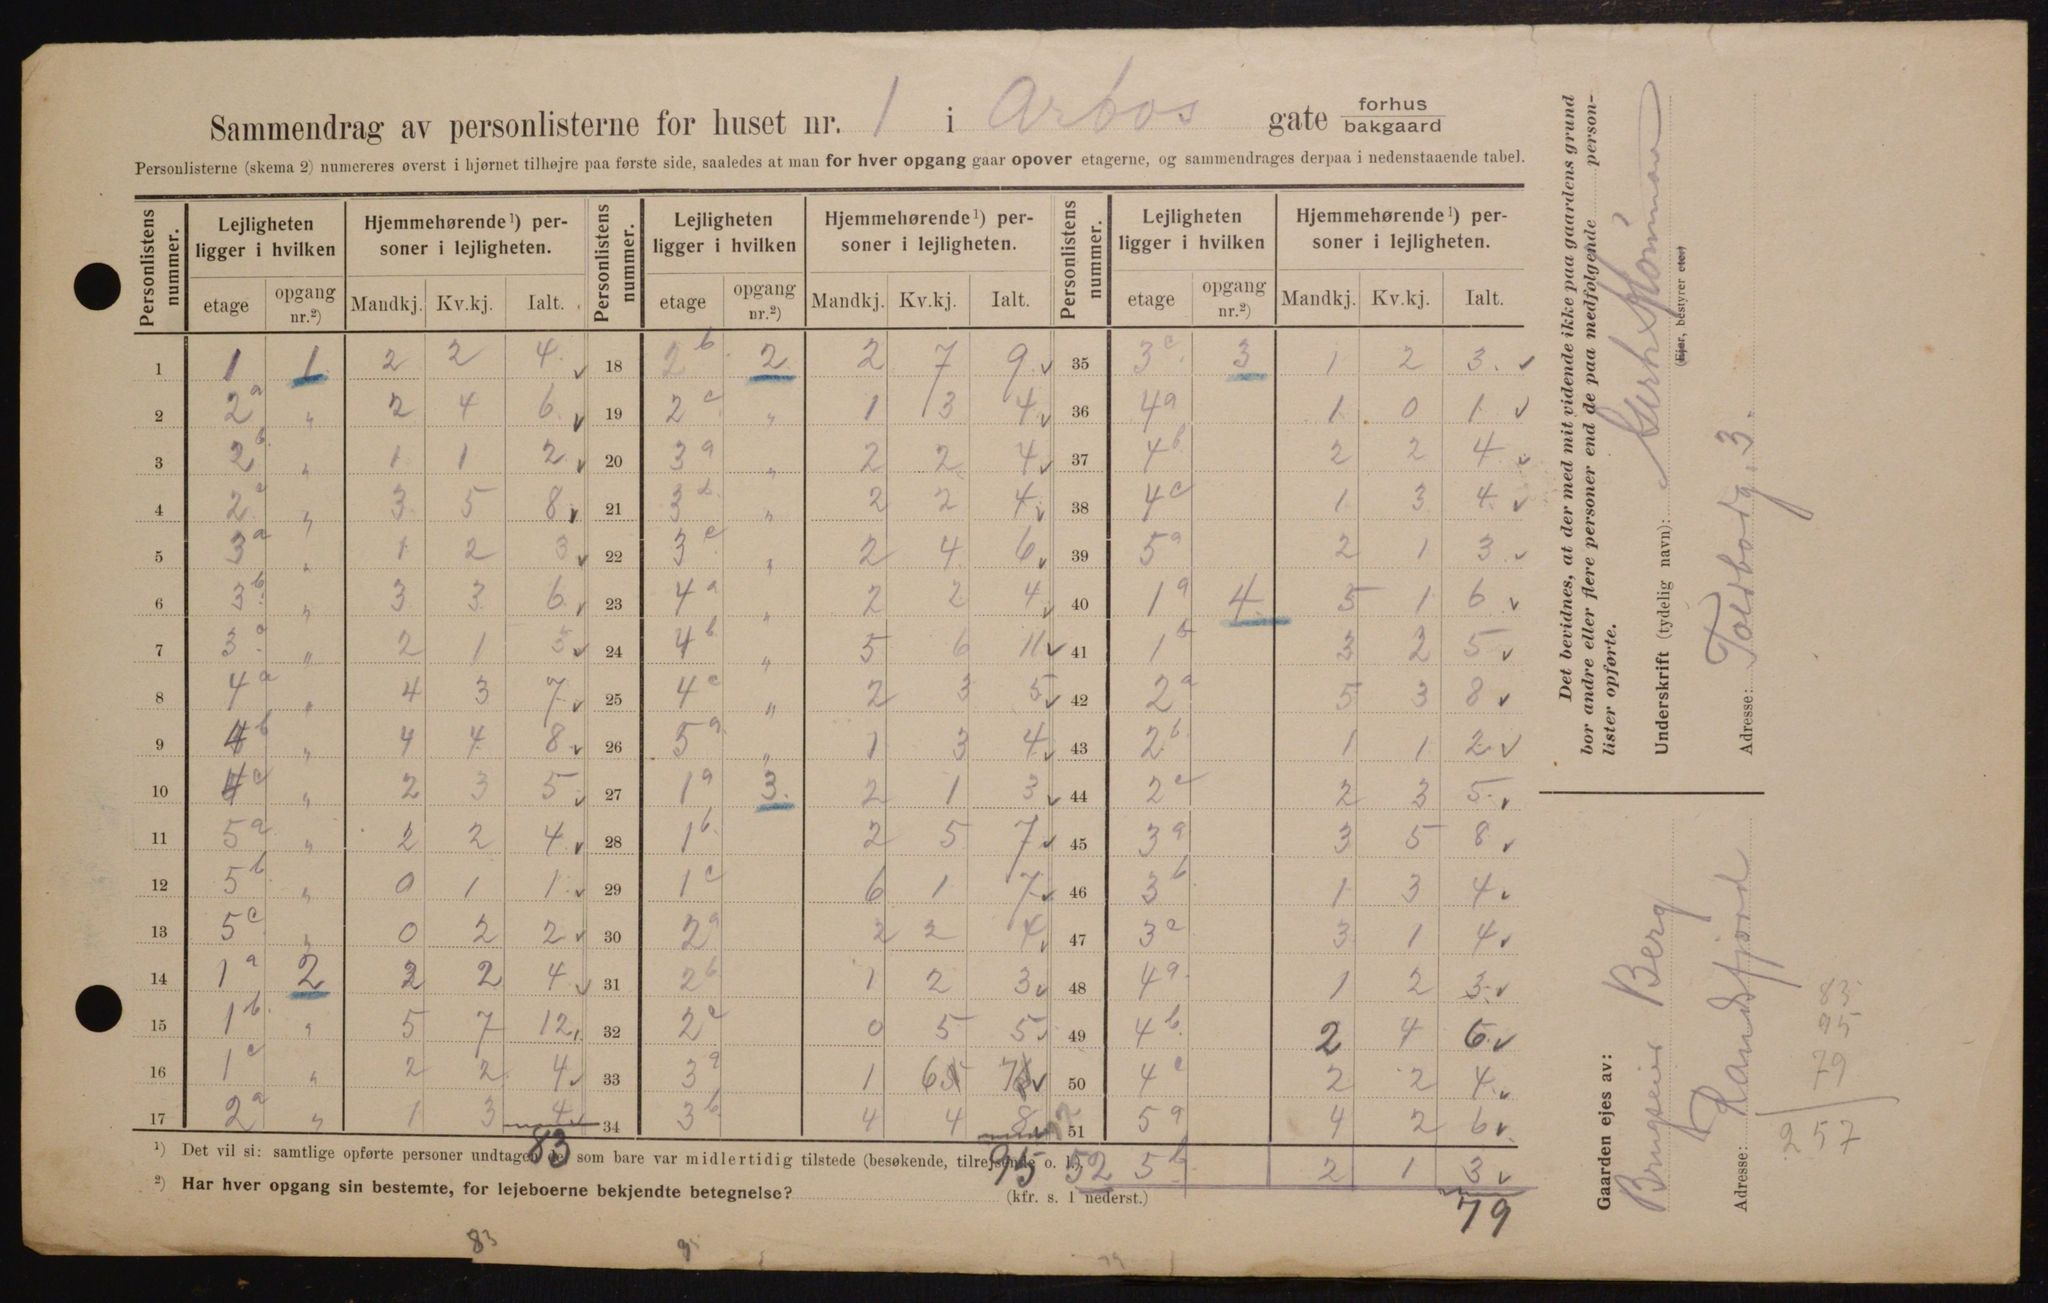 Sammendrag av personlisterne for huset nr. 1 i Arbos gate forhus bakgaard
Personlisterne (skema 2) numereres øverst i hjørnet tilhøjre paa første side, saaledes at man for hver opgang gaar opover etagerne, og sammendrages derpaa i nedenstaaende tabel.
Personlistens nummer. Lejligheten ligger i hvilken Hjemmehørende ¹) personer i lejligheten. Personlistens nummer. Lejligheten ligger i hvilken Hjemmehørende ¹) personer i lejligheten. Personlistens nummer. Lejligheten ligger i hvilken Hjemmehørende ¹) personer i lejligheten.
etage opgang nr.²) Mandkj. Kv.kj. Ialt. etage opgang nr.²) Mandkj. Kv.kj. Ialt. etage opgang nr.²) Mandkj. Kv.kj. Ialt.
1 1 1 2 2 4 18 2b 2 2 7 9 35 3c 3 1 2 3
2 2a " 2 4 6 19 2c " 1 3 4 36 4a 1 0 1
3 2b " 1 1 2 20 3a " 2 2 4 37 4b 2 2 4
4 2c " 3 5 8 21 3b " 2 2 4 38 4c 1 3 4
5 3a " 1 2 3 22 3c " 2 4 6 39 5a 2 1 3
6 3b " 3 3 6 23 4a " 2 2 4 40 1a 4 5 1 6
7 3c " 2 1 3 24 4b " 5 6 11 41 1b 3 2 5
8 4a " 4 3 7 25 4c " 2 3 5 42 2a 5 3 8
9 4b " 4 4 8 26 5a " 1 3 4 43 2b 1 1 2
10 4c " 2 3 5 27 1a 3. 2 1 3 44 2c 2 3 5
11 5a " 2 2 4 28 1b 2 5 7 45 3a 3 5 8
12 5b " 0 1 1 29 1c 6 1 7 46 3b 1 3 4
13 5c " 0 2 2 30 2a 2 2 4 47 3c 3 1 4
14 1a 2 2 2 4 31 2b 1 2 3 48 4a 1 2 3
15 1b " 5 7 12 32 2c 0 5 5 49 4b 2 4 6
16 1c " 2 2 4 33 3a 1 6 7 50 4c 2 2 4
17 2a " 1 3 4 34 3b 4 4 8 51 5a 4 2 6
83 95 52 5b 2 1 3
79
¹) Det vil si: samtlige opførte personer undtagen de, som bare var midlertidig tilstede (besøkende, tilrejsende o. l.)
²) Har hver opgang sin bestemte, for lejeboerne bekjendte betegnelse? (kfr. s. 1 nederst.)
83
Det bevidnes, at der med mit vidende ikke paa gaardens grund
bor andre eller flere personer end de paa medfølgende personlister opførte.
Underskrift (tydelig navn):
(Ejer, bestyrer etc.)
Adresse: Toldbodg. 3.
Gaarden ejes av: Brugseier Berg
Adresse: Randsfjord
83
95
79
257